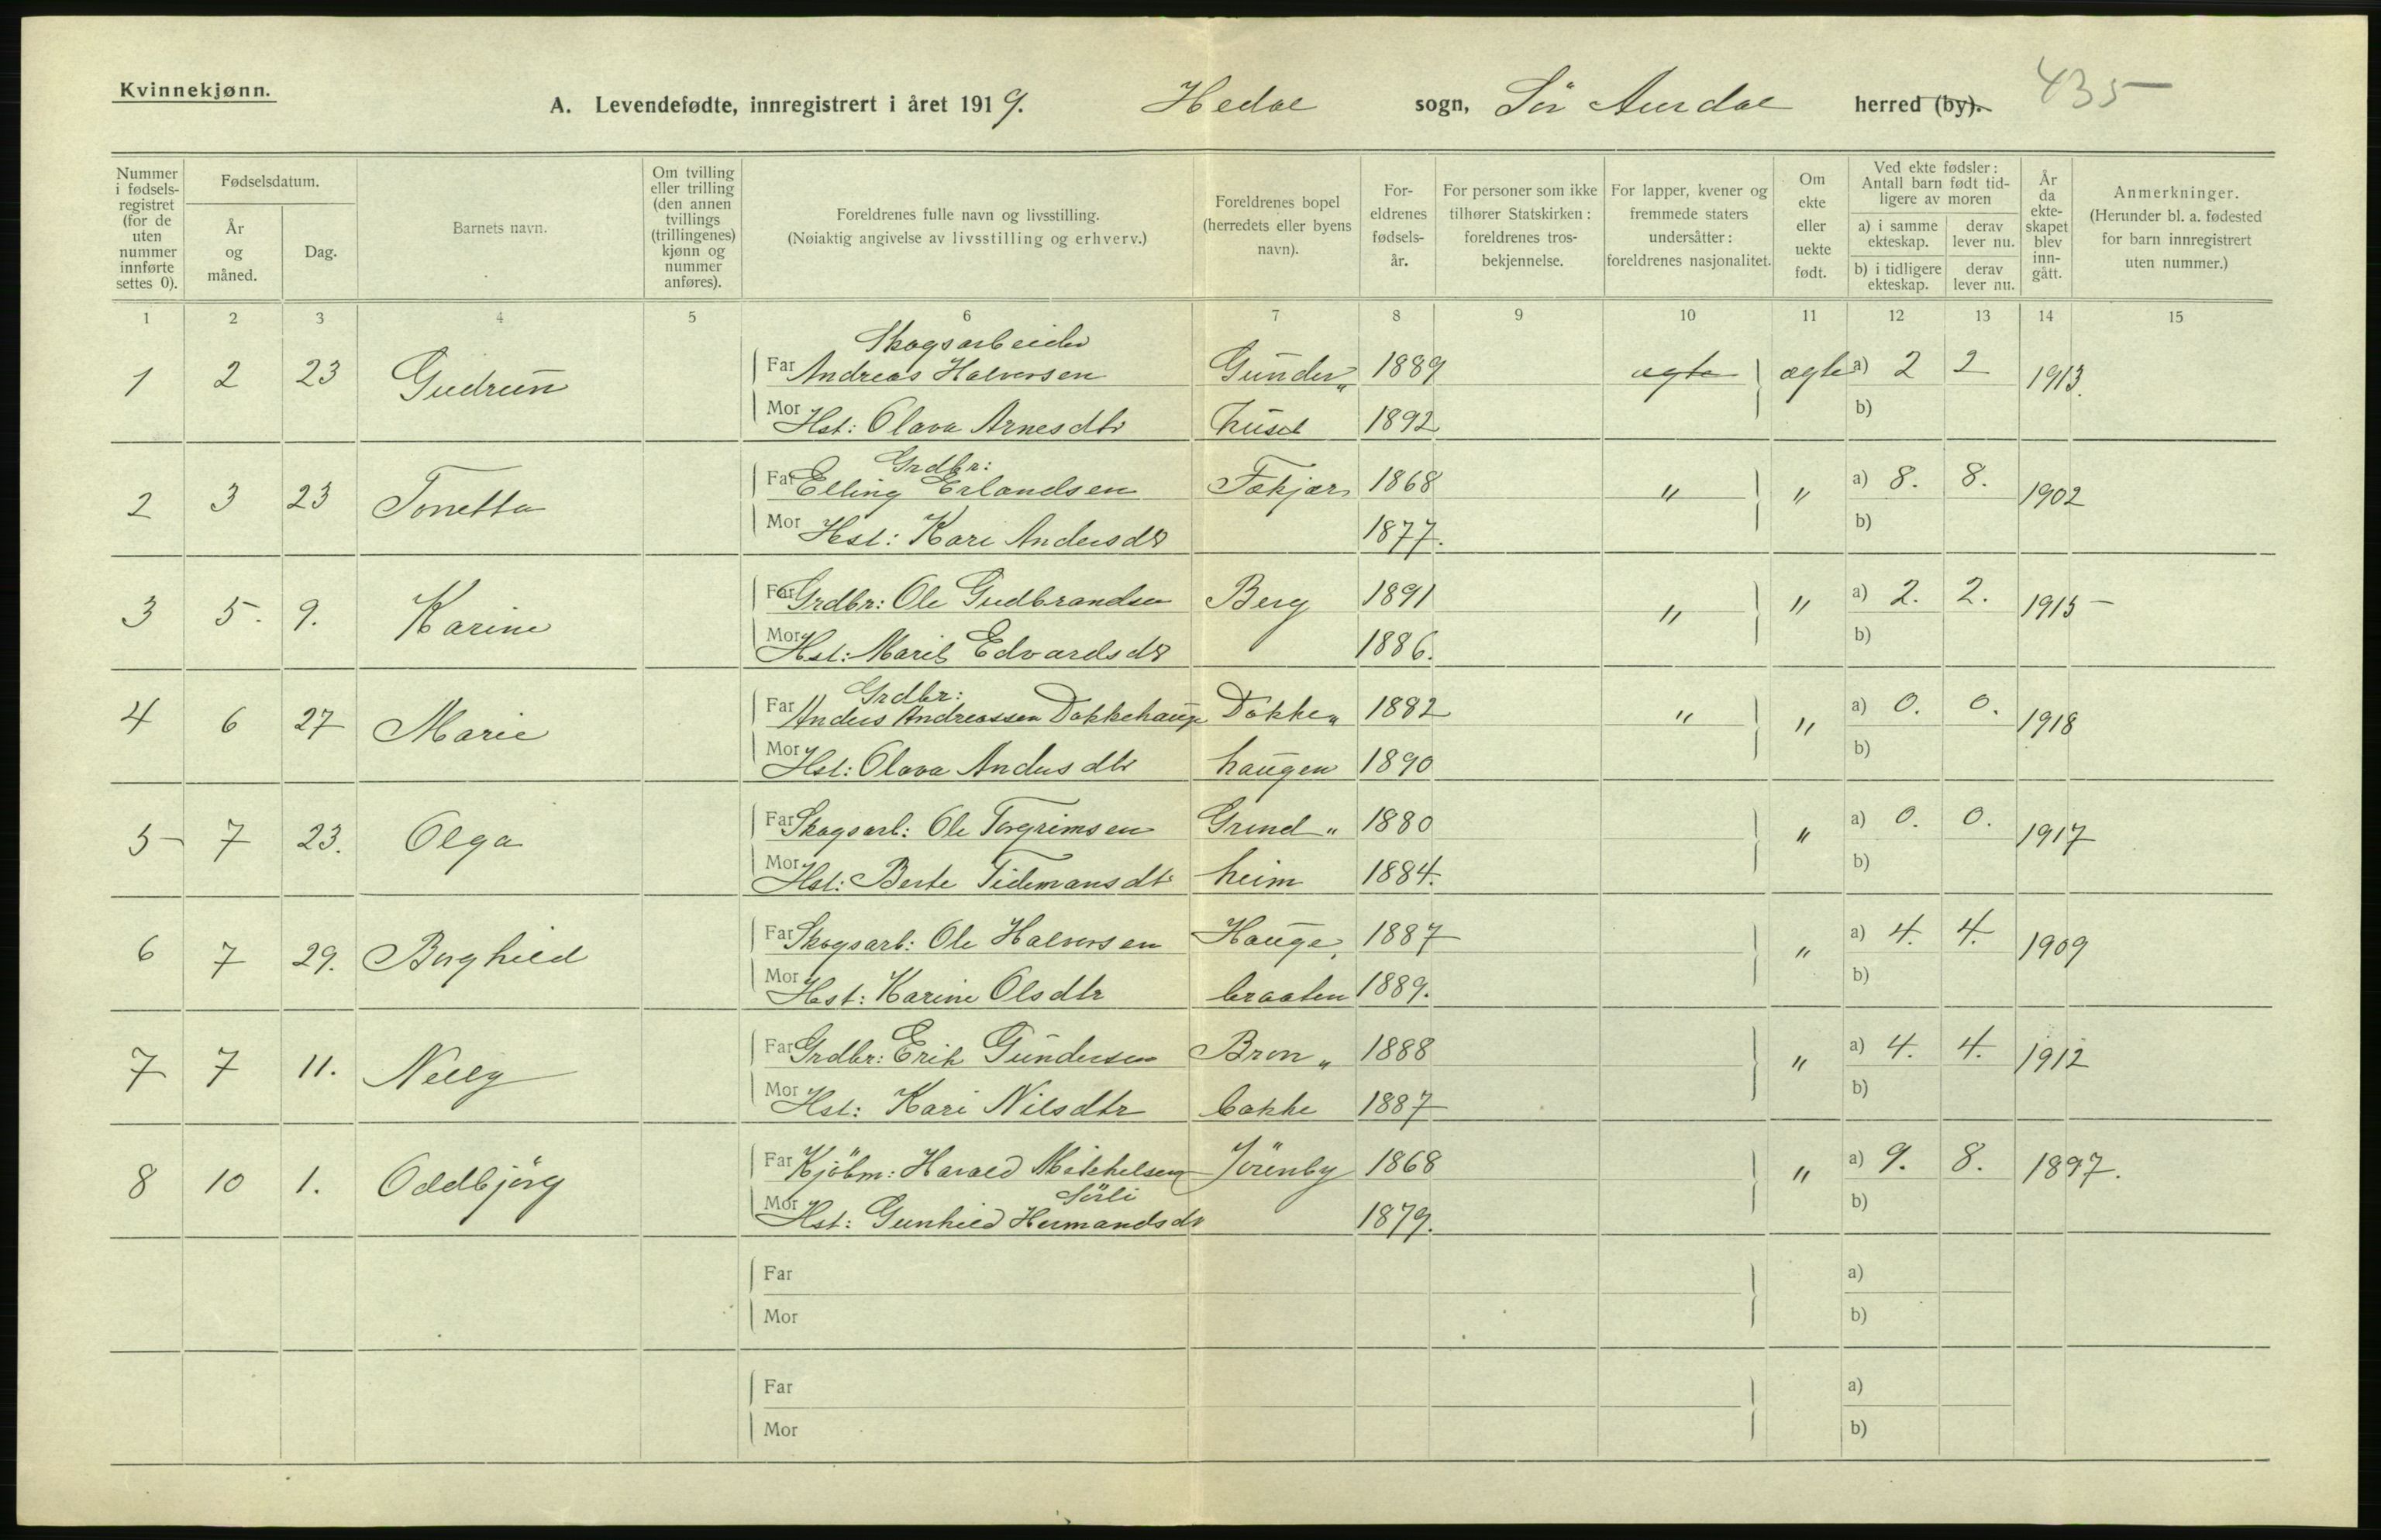 Kvinnekjønn.
A. Levendefødte, innregistrert i året 1919. Hedal sogn, Sör Aurdal herred (by). 435
Nummer i fødsels-registret (for de uten nummer innførte settes 0).
Fødselsdatum.
År og måned.
Dag.
Barnets navn.
Om tvilling eller trilling (den annen tvillings (trillingenes) kjønn og nummer anføres).
Foreldrenes fulle navn og livsstilling. (Nøiaktig angivelse av livsstilling og erhverv.)
Foreldrenes bopel (herredets eller byens navn).
For-eldrenes fødsels-år.
For personer som ikke tilhører Statskirken: foreldrenes tros-bekjennelse.
For lapper, kvener og fremmede staters undersåtter: foreldrenes nasjonalitet.
Om ekte eller uekte født.
Ved ekte fødsler: Antall barn født tid-ligere av moren
a) i samme ekteskap. derav lever nu.
b) i tidligere ekteskap. derav lever nu.
År da ekte-skapet blev inn-gått.
Anmerkninger. (Herunder bl. a. fødested for barn innregistrert uten nummer.)
1 2 3 4 5 6 7 8 9 10 11 12 13 14 15
Skogsarbeider
1 2 23 Gudrun Far Andreas Halvorsen Gunder„ 1889 ægte ægte a) 2 2 1913.
Mor Hst: Olava Arnesdtr huset 1892 b)
Grdbr:
2 3 23 Tonetta Far Elling Erlandsen Fekjær 1868 " " a) 8. 8. 1902
Mor Hst: Kari Andersdtr 1877. b)
3 5. 9. Karine Far Grdbr: Ole Gudbrandsen Berg 1891 " " a) 2. 2. 1915
Mor Hst: Marit Edvardsdtr 1886. b)
Grdbr:
4 6 27 Marie Far Anders Andreassen Dokkehauge Dokke„ 1882 " " a) 0. 0. 1918
Mor Hst: Olava Andersdtr haugen 1890 b)
5 7 23. Olga Far Skogsarb: Ole Torgrimsen Grind„ 1880 " a) 0. 0. 1917
Mor Hst: Berte Tidemansdtr heim 1884. b)
6 7 29. Borghild Far Skogsarb: Ole Halvorsen Hauge„ 1887 " a) 4. 4. 1909
Mor Hst: Karine Olsdtr braaten 1889. b)
7 7 11. Nelly Far Grdbr: Erik Gundersen Bron„ 1888 " a) 4. 4. 1912
Mor Hst: Kari Nilsdtr bakke 1887 b)
8 10 1. Oddbjörg Far Kjöbm: Harald Mikkelsen Jörenby 1868 " a) 9. 8. 1897.
Sörli
Mor Hst: Gunhild Hermandsdtr 1879. b)
Far a)
Mor b)
Far a)
Mor b)